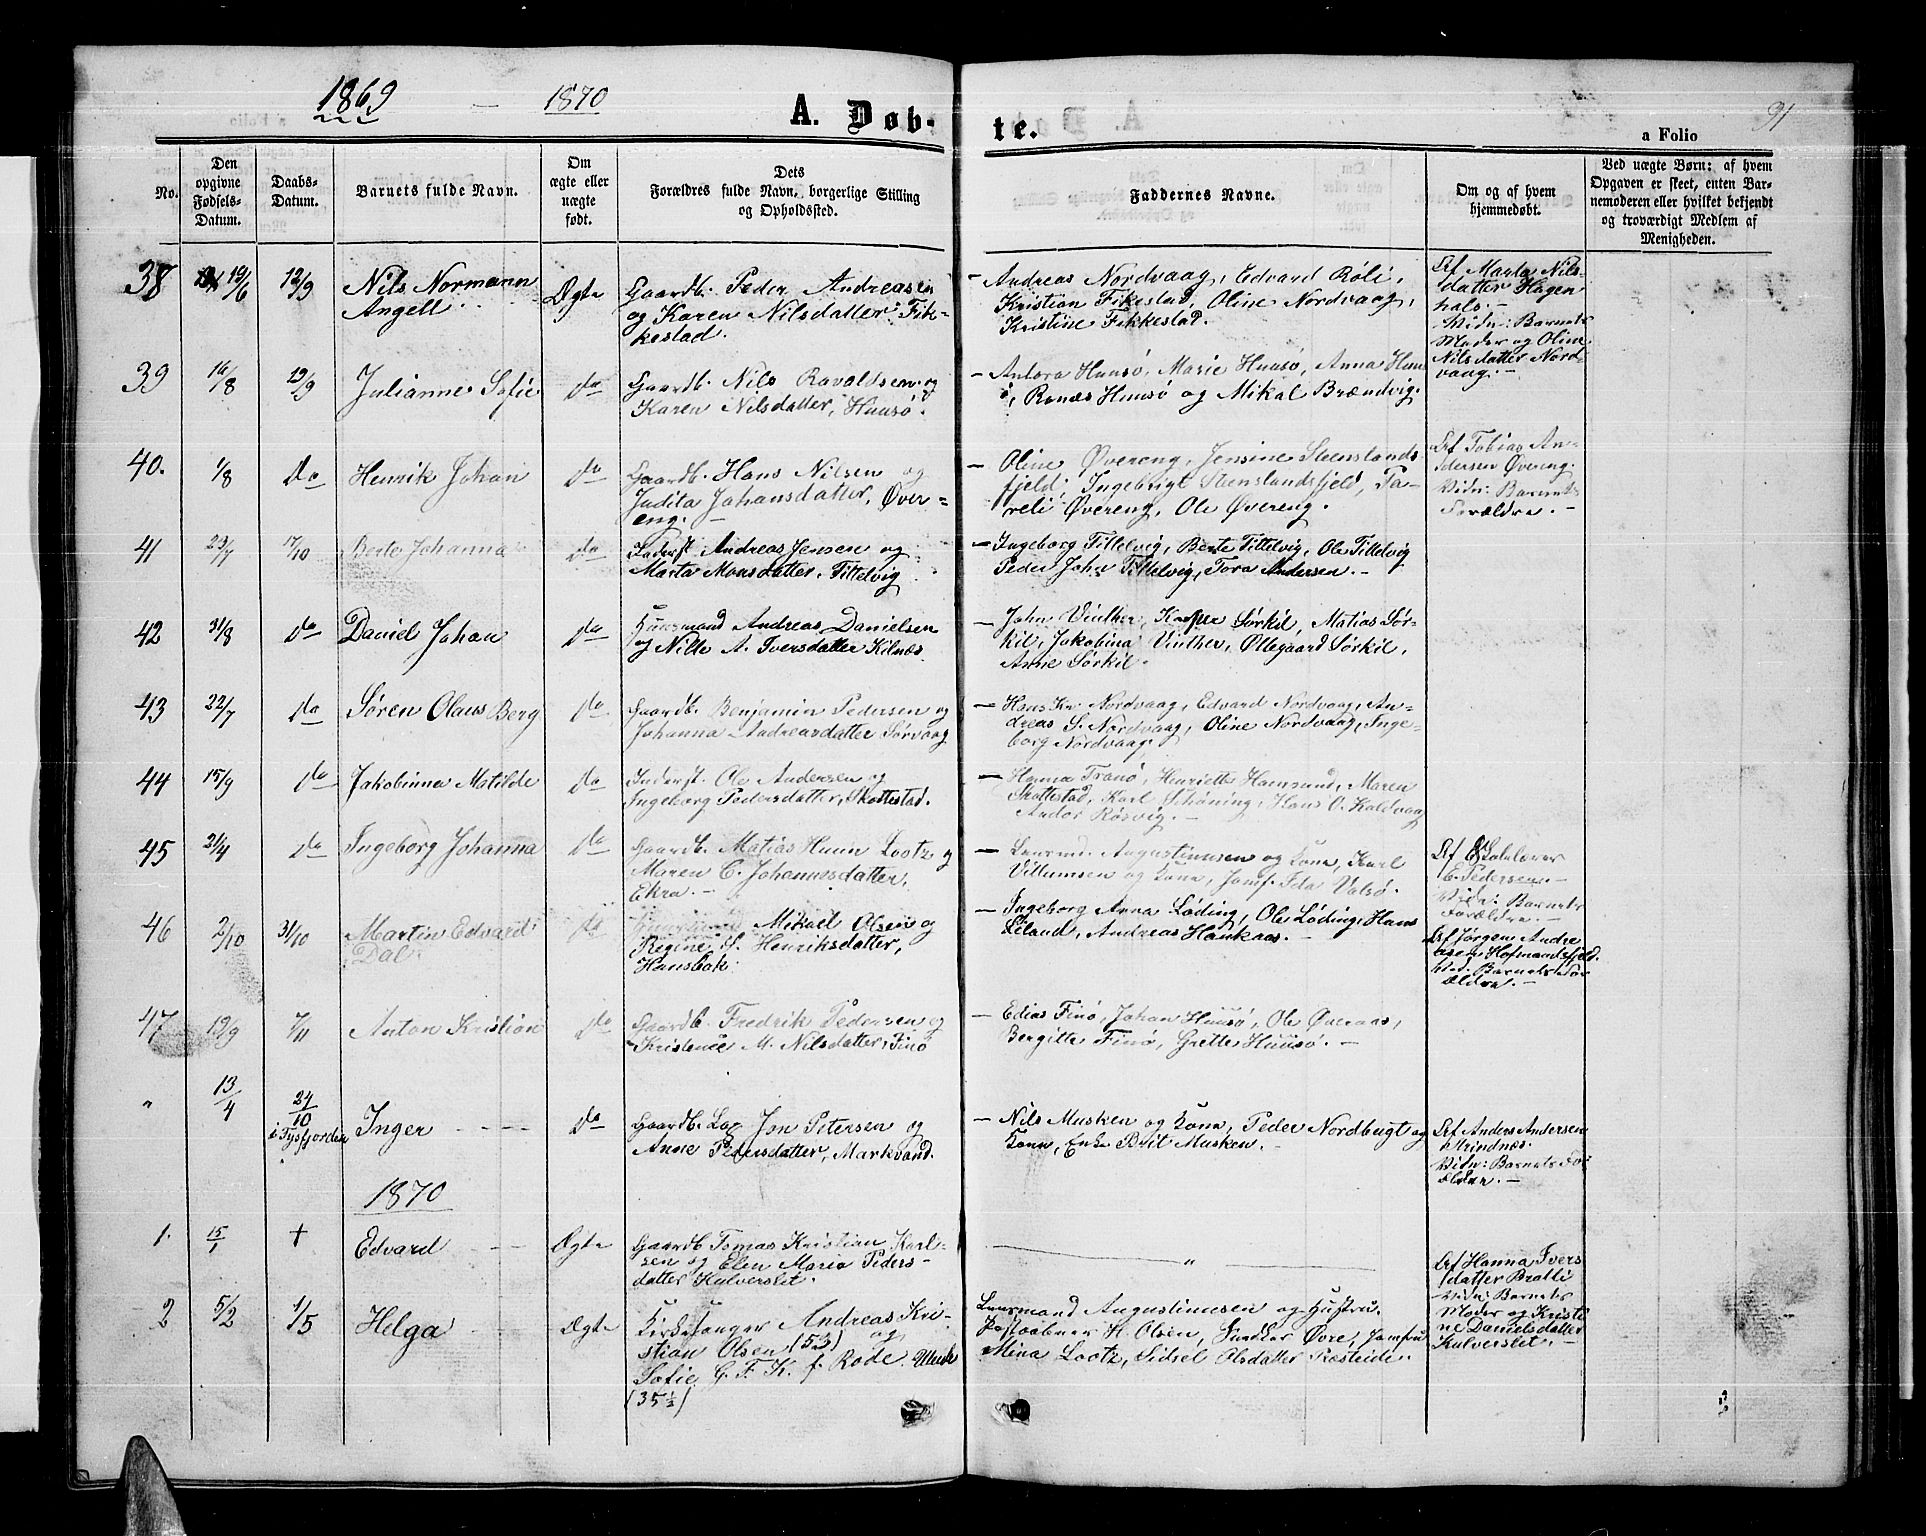 1869 - 1870
A. Døb-
te.
91
a Folio
No.
Den
opgivne
Fødsels-
Datum.
Daabs-
Datum.
Barnets fulde Navn.
Om
ægte eller
uægte
født.
Dets
Forældres fulde Navn, borgerlige Stilling
og Opholdssted.
Faddernes Navne.
Om og af hvem
hjemmedøbt.
Ved uægte Børn: af hvem
Opgaven er skeet, enten Bar-
nemoderen eller hvilket bekjendt
og troværdigt Medlem af
Menigheden.
38 19/6 12/9 Nils Normann
Angell
Ægte
Gaardb. Peder Andreasen
og Karen Nilsdatter Fik-
kestad.
- Andreas Nordvaag, Edvard Røli,
Kristian Fikestad, Oline Nordvaag,
Kristine Fikkestad.
Af Marta Nils-
datter Hagen
hals.-
Vidn: Barnets
Moder og Oline
Nilsdatter Nord-
vaag.-
39 16/8 19/9 Julianne Sofie
do
Gaardb. Nils Ravaldsen og
Karen Nilsdatter, Huusø.
- Antora Huusø, Marie Huusø, Anna Huus
ø, Ronæs Huusø og Mikal Brændvig.
40. 1/8 do Henrik Johan
do
Gaardb. Hans Nilsen og
Judita Johansdatter, Øver-
eng.-
- Oline Øvereng, Jensine Steenslands
fjeld, Ingebrigt Stenslandsfjeld, Pa-
reli Øvereng, Ole Øvereng.
Af Tobias An-
dersen Øvereng.
Vidn: Barnets
Forældre.-
41 23/7 17/10 Berte Johanna
do
Inderst Andreas Jensen og
Marta Monsdatter, Tittelvig
- Ingeborg Tittelvig, Berte Tittelvig, Ole Tittelvig
Peder John Tittelvig, Tora Andersen.-
42 31/8 do Daniel Johan
do
Huusmand Andreas Danielsen
og Nille A. Iversdatter Kilnæs.
- John Vinther, Kasper Sørkil, Matias Sør-
kil, Jakobina Vinther, Ollegaard Sørkil,
Anne Sørkil.
43 22/7 do Søren Olaus Berg
do
Gaardb. Benjamin Pedersen og
Johanna Andreasdatter Sørvaag
- Hans Kr. Nordvaag, Edvard Nordvaag, An-
dreas S. Nordvaag, Oline Nordvaag, Inge-
borg Nordvaag.
44 15/9 do Jakobinna Matilde
do
Inderst. Ole Andersen og
Ingeborg Pedersdatter, Skottestad.
- Hanna Tranø, Henriette Hamsund, Maren
Skottestad, Karl Schøning, Hans O. Kaldvaag
Andor Røsvig.-
45 21/4 do Ingeborg Johanna
do
Gaardb. Matias Huun Lootz og
Maren C. Johannesdatter,
Ekra.-
- Lensmd. Augustinusen og Kone, Karl
Villumsen og Kone, Jomf. Ida Valsø.
Af Skolelærer
E. Pedersen.-
Vidn: Barnets
Forældre.-
46 2/10 31/10 Martin Edvard
Dal
do
Mikael Olsen og
Regine H. Henriksdatter,
Hansbak
- Ingeborg Anna Løding, Ole Løding, Hans
Eiland, Andreas Haukaas.-
Af Jørgen Andre
asen Hofmandsfjeld.
Vid. Barnets For
ældre.-
47 19/9 7/11 Anton Kristian
do
Gaardb. Fredrik Pedersen og
Kristence M. Nilsdatter, Finø
- Edias Finø, Johan Huusø, Ole Øveraas,
Bergitte Finø, Grette Huusø.-
" 13/4 24/10
i Tysfjorden
Inger
do
Gaardb. Lap Jon Petersen og
Anne Pedersdatter, Markvand.
- Nils Musken og Kone, Peder Nordbugt og
Kone, Enke Brit Musken.-
Af Anders Andersen
Grindnæs.
Vidn: Barnets For
ældre.-
1870
1. 15/1 + Edvard
Ægte
Gaardb Tomas Kristian Karl-
sen og Elen Maria Peders-
datter Kulverslet.
"
Af Hanna Ivers
datter Bratli
Vidn: Barnets
Moder og Kristi
ne Danielsdatter
Kulverslet.-
2 5/2 1/5 Helga
Ægte
Kirkesanger Andreas Kri-
stian Olsen (53) og
Sofie G. F. K. f. Rode Munk
(35½)
Lensmand Augustinusen og Hustru,
Postaabner H. Olsen, Øvre, Jomfru
Mina Lootz, Sidsel Olsdatter Præsteide.